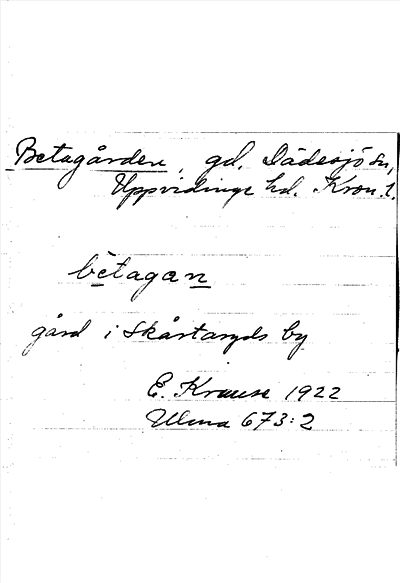 Betagården, gd. Dädesjö sn,
Uppvidinge hd. Kron. l.
bètagan
gård i Skårtaryds by
E. Krause 1922
Ulma 673:2